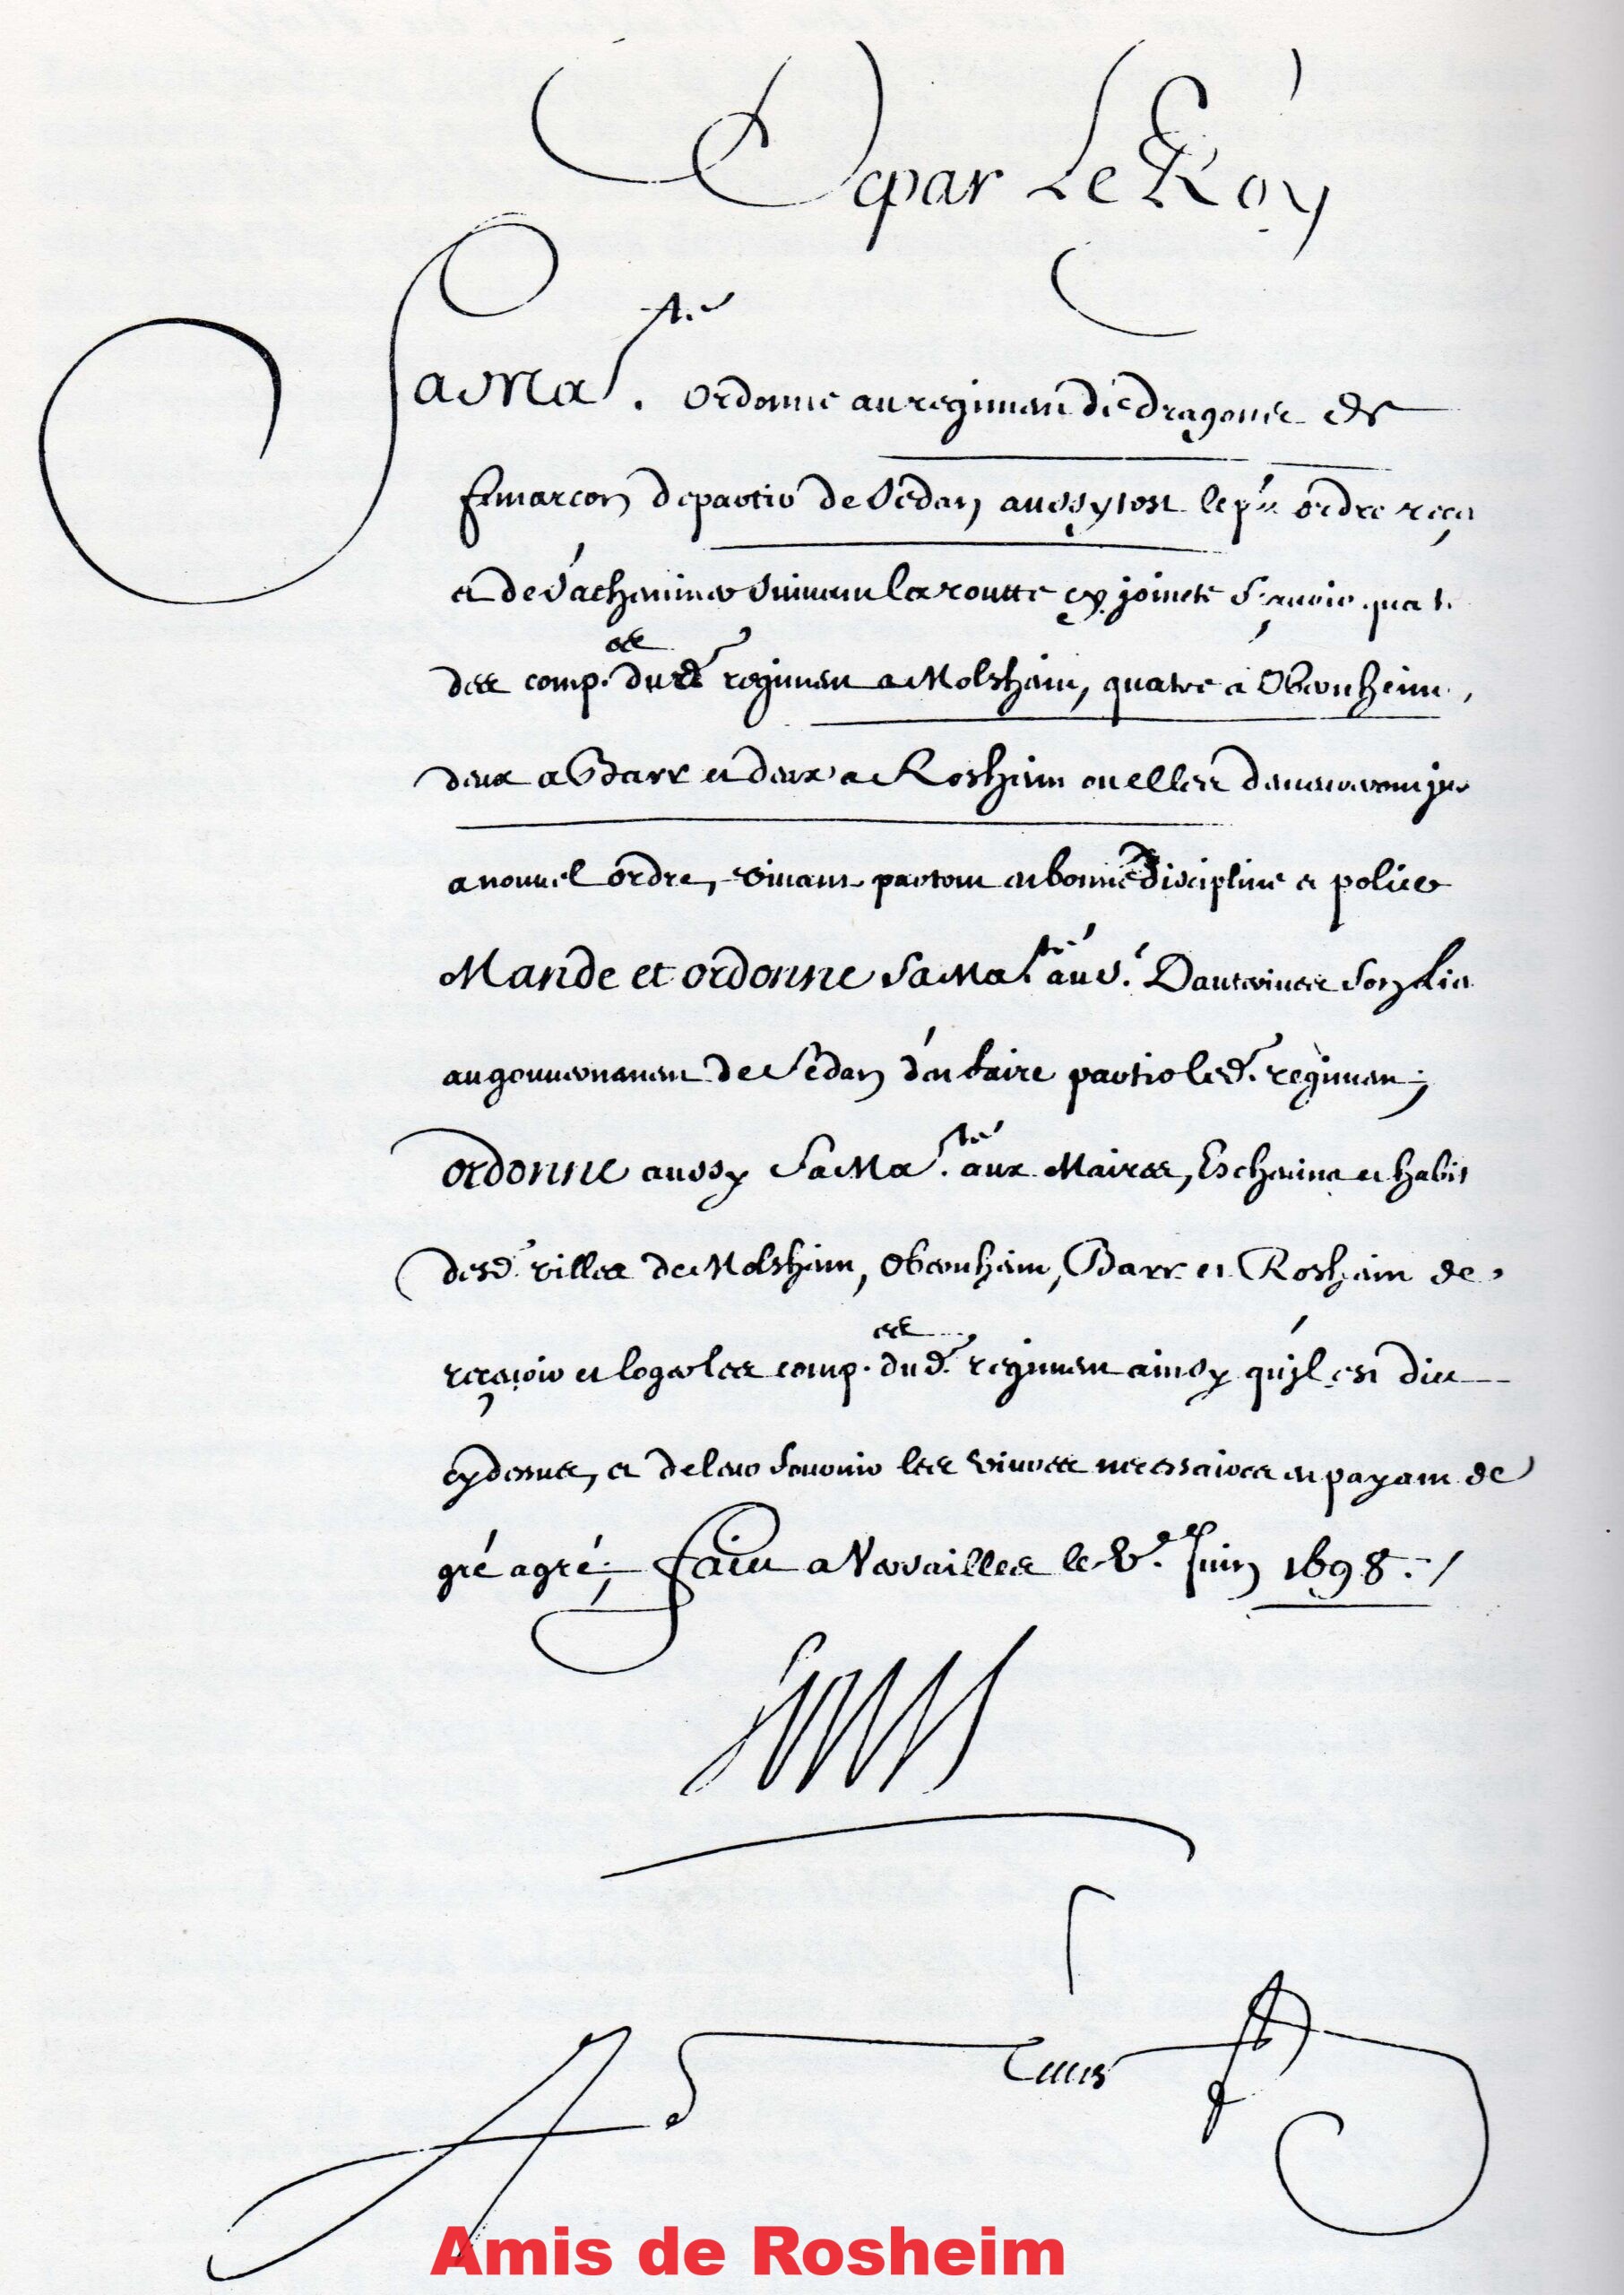 De par Le Roy
Sa Ma.té ordonne au regiment de dragons de
fimarcon de partir de Sedan aussytost le p.nt ordre reçu
et de s'acheminer suivant la routte cy jointe sçavoir quat.
des comp.es dud. regiment a Molsheim, quatre a Obernheim,
deux a Barr et deux a Rosheim ou elles demeureront jus
a nouvel ordre, vivans partout en bonne discipline et police
Mande et ordonne Sa Ma.té au S.r
au gouvernement de Sedan d'en faire partir led. regiment;
ordonne aussy Sa Ma.té aux Maires, Eschevins et habit
desd. villes de Molsheim, Obernheim, Barr et Rosheim de
recevoir et loger les comp.es dud. regiment ainsy qu'jl est dit
cydessus, et de leur fournir les vivres necessaires en payant de
gré a gré; fait a Versailles le Juin 1698 ./
Louis
Amis de Rosheim